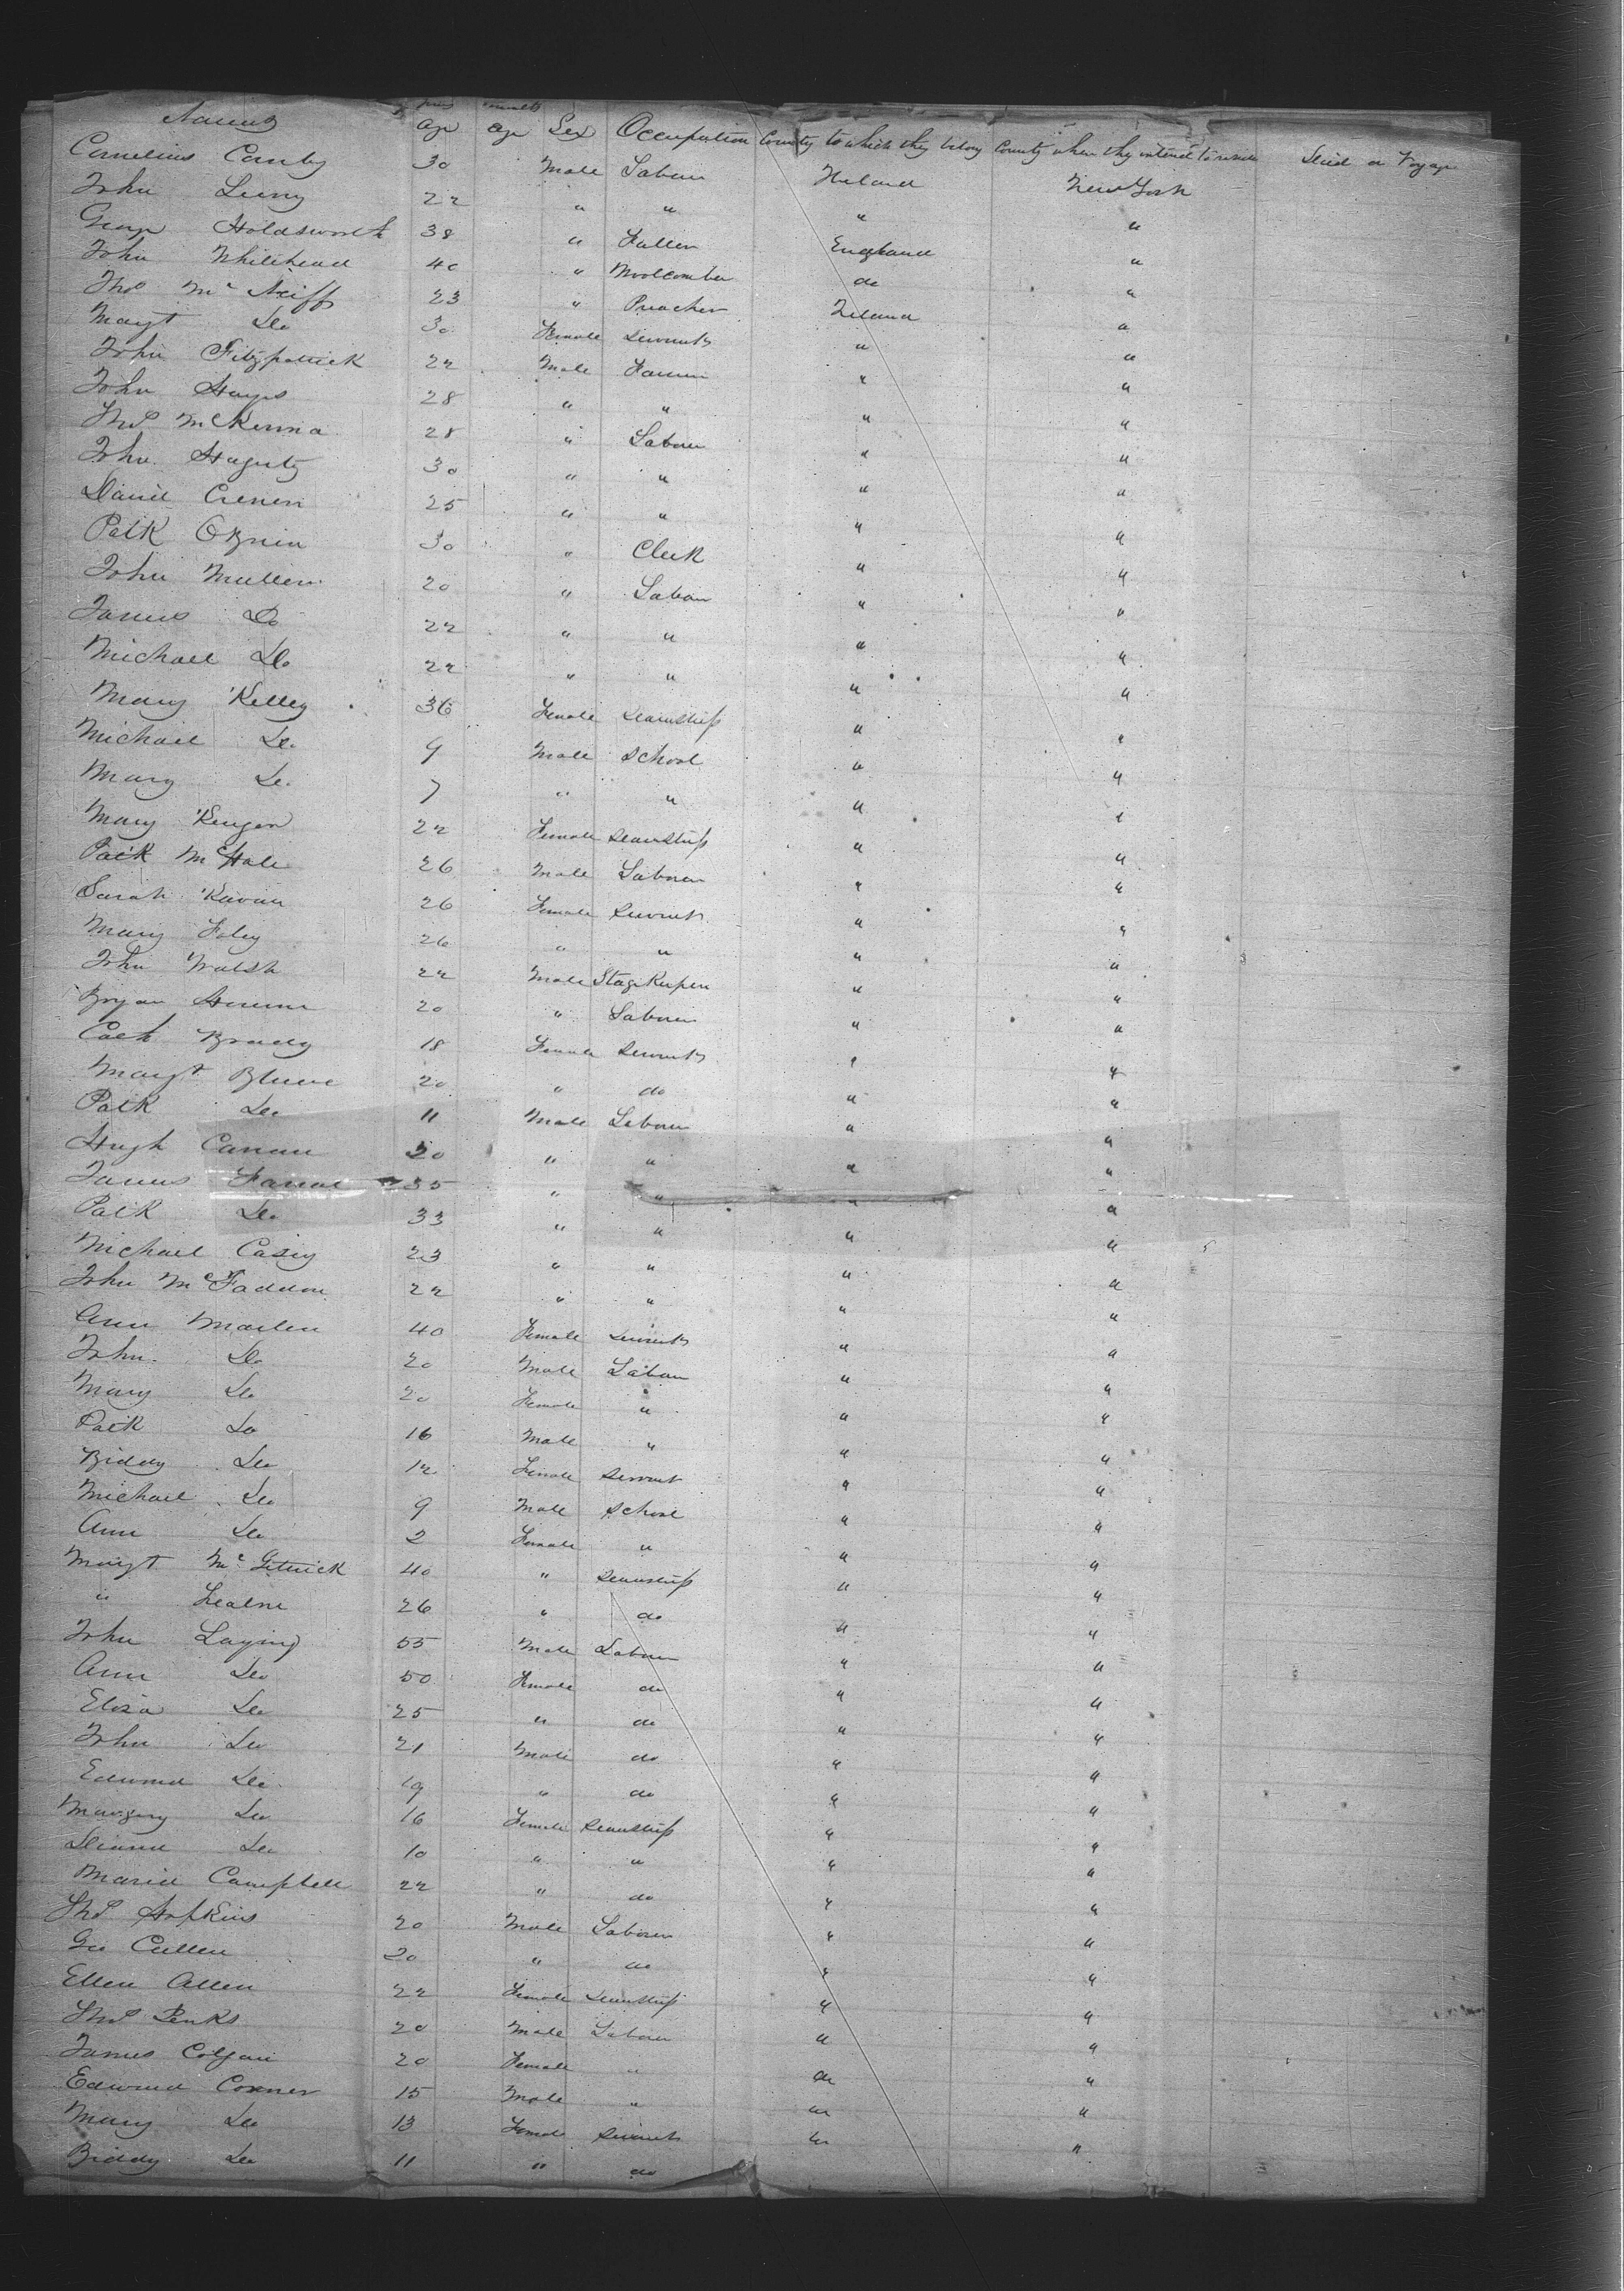 Names age age Sex Occupation County to which they belong County where they intend to reside Died on Voyage
Cornelius Canby 30 Male Labour Ireland New York
John Leing 22 " " " "
George Holdsworth 38 " Fuller England "
John Whitehead 40 " Woolcomber do "
Thos McNiff 23 " Preacher Ireland "
Margt Do 30 Female Servant " "
John Fitzpatrick 22 Male Farmer " "
John Hays 28 " " " "
Thos McKenna 28 " Labour " "
John Haguty 30 " " " "
David Crenen 25 " " " "
Patk OBrien 30 " Clerk " "
John Mullen 20 " Labour " "
James Do 22 " " " "
Michael Do 22 " " " "
Mary Kelley 36 Female Seamstress " "
Michael Do 9 Male School " "
Mary Do 7 " " " "
Mary Keugan 22 Female Seamstress " "
Patk McHale 26 Male Labour " "
Sarah Kavan 26 Female Servant " "
Mary Foley 26 " " " "
John Walsh 22 Male Stage Keeper " "
Bryan 20 " Labour " "
Cath Brady 18 Female Servant " "
Margt 20 " do " "
Patk Do 11 Male Labour " "
Hugh Canan 20 " " " "
James Farral 35 " " " "
Patk Do 33 " " " "
Michael Casey 23 " " " "
John McFaddon 22 " " " "
Ann Marlen 40 Female Servant " "
John Do 20 Male Labour " "
Mary Do 20 Female " " "
Patk Do 16 Male " " "
Biddy Do 12 Female Servant " "
Michael Do 9 Male School " "
Ann Do 2 Female " " "
Margt McGetrick 40 " Seamstress " "
" 26 " do " "
John Laying 55 Male Labour " "
Ann Do 50 Female do " "
Eliza Do 25 " do " "
John Do 21 Male do " "
Edward Do 19 " do " "
Margery Do 16 Female Seamstress " "
Diana Do 10 " " " "
Maria Campbell 22 " do " "
Thos Hopkins 20 Male Labour " "
Geo Cullen 20 " do " "
Ellen Allen 22 Female Seamstress " "
Thos Penks 20 Male Labour " "
James Colgan 20 Female " do "
Edward Conner 15 Male " do "
Mary Do 13 Female Servant do "
Biddy Do 11 " do